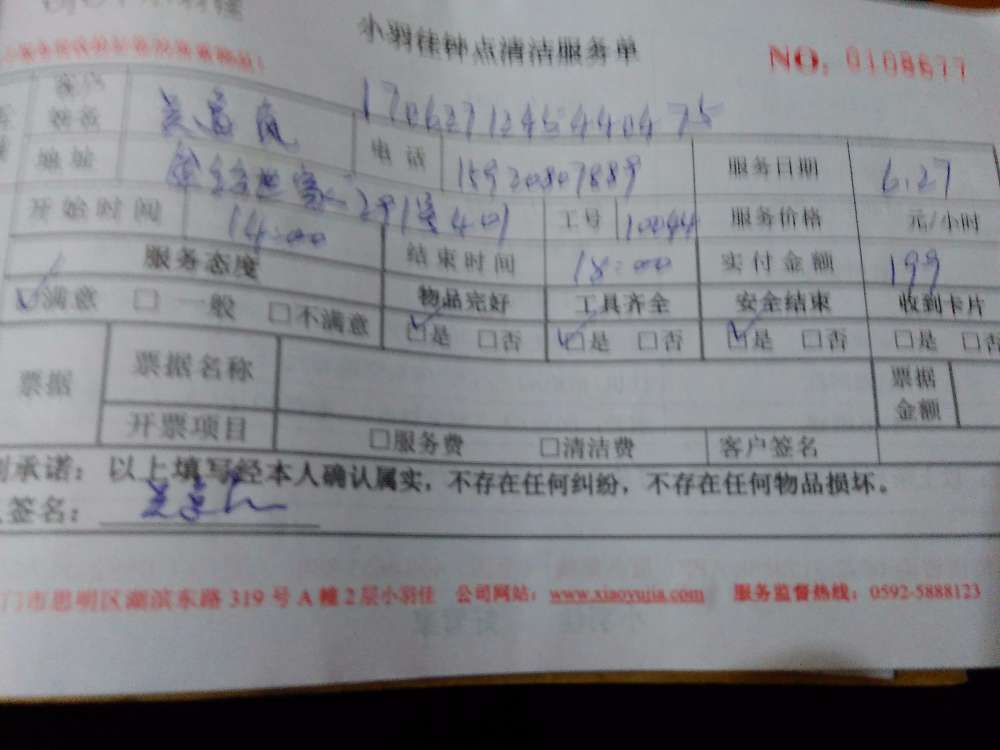 小羽佳钟点清洁服务单 NO: 0108677
客户姓名 170627124644 0475
地址 291 401 电话 15920807889 服务日期 6.27
开始时间 14:00 工号 10044 服务价格 元/小时
服务态度 结束时间 18:00 实付金额 199
物品完好 工具齐全 安全结束 收到卡片
☑满意 □一般 □不满意 ☑是 □否 ☑是 □否 ☑是 □否 □是 □否
票据 票据名称 票据金额
开票项目 □服务费 □清洁费 客户签名
承诺:以上填写经本人确认属实,不存在任何纠纷,不存在任何物品损坏。
签名:
门市思明区湖滨东路 319 号 A 幢 2 层小羽佳 公司网站:www.xiaoyujia.com 服务监督热线:0592-5888123